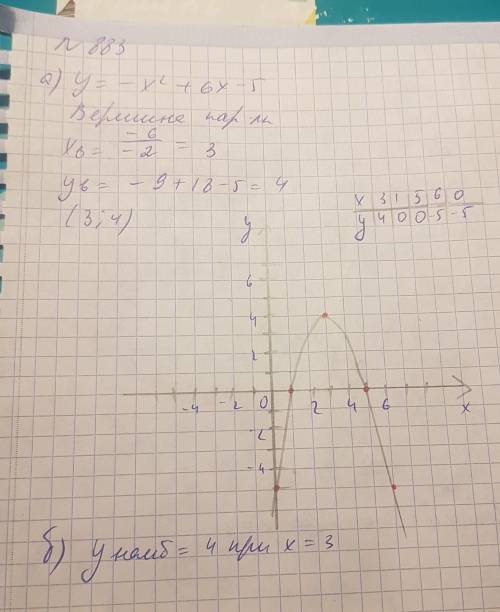 N 883
а) y = -x² + 6x - 5
Вершина пар-лы
xв = -6/-2 = 3
yв = -9 + 18 - 5 = 4
(3; 4)
x 3 1 5 6 0
y 4 0 0 -5 -5
y
6
4
2
-4 -2 0 2 4 6 x
-2
-4
б) y наиб = 4 при x = 3